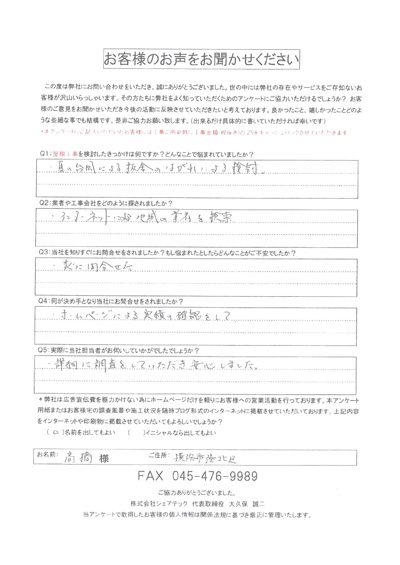 お客様のお声をお聞かせください
この度は弊社にお問い合わせをいただき、誠にありがとうございました。世の中には弊社の存在やサービスをご存知ないお
客様が沢山いらっしゃいます。その方たちに弊社をよく知っていただくためのアンケートにご協力いただけるでしょうか? お客
様のご意見をお聞かせいただき今後の活動に反映させていただきたいと考えております。良かったこと、嬉しかったことどのよ
うな些細な事でも結構です、是非ご協力お願い致します。(出来るだけ具体的に書いていただければ幸いです)
Q1:屋根工事を検討したきっかけは何ですか?どんなことで悩まれていましたか?
・夏の台風による板金のはがれによる検討。
Q2:業者や工事会社をどのように探されましたか?
・インターネットによる地域の業者を検索
Q3:当社を知りすぐにお問合せをされましたか?もし悩まれたとしたらどんなことがご不安でしたか?
・すぐに問合せた
Q4:何が決め手となり当社にお問合せをされましたか?
・ホームページによる実績の確認をして
Q5:実際に当社担当者がお伺いしていかがでしたでしょうか?
・詳細に調査をしていただき安心しました。
*弊社は広告宣伝費を極力かけない為にホームページだけを頼りにお客様への営業活動を行っております。本アンケート
用紙またはお客様宅の調査風景や施工状況を随時ブログ形式のインターネットに掲載させていただいております。上記内容
をインターネットや印刷物に掲載させていただいてもよろしいでしょうか?
(○)名前を出してもよい ( )イニシャルなら出してもよい
お名前: 高橋 様 ご住所: 横浜市港北区
FAX 045-476-9989
ご協力ありがとうございました。
株式会社シェアテック 代表取締役 大久保 誠二
当アンケートで取得したお客様の個人情報は関係法規に基づき厳正に管理いたします。